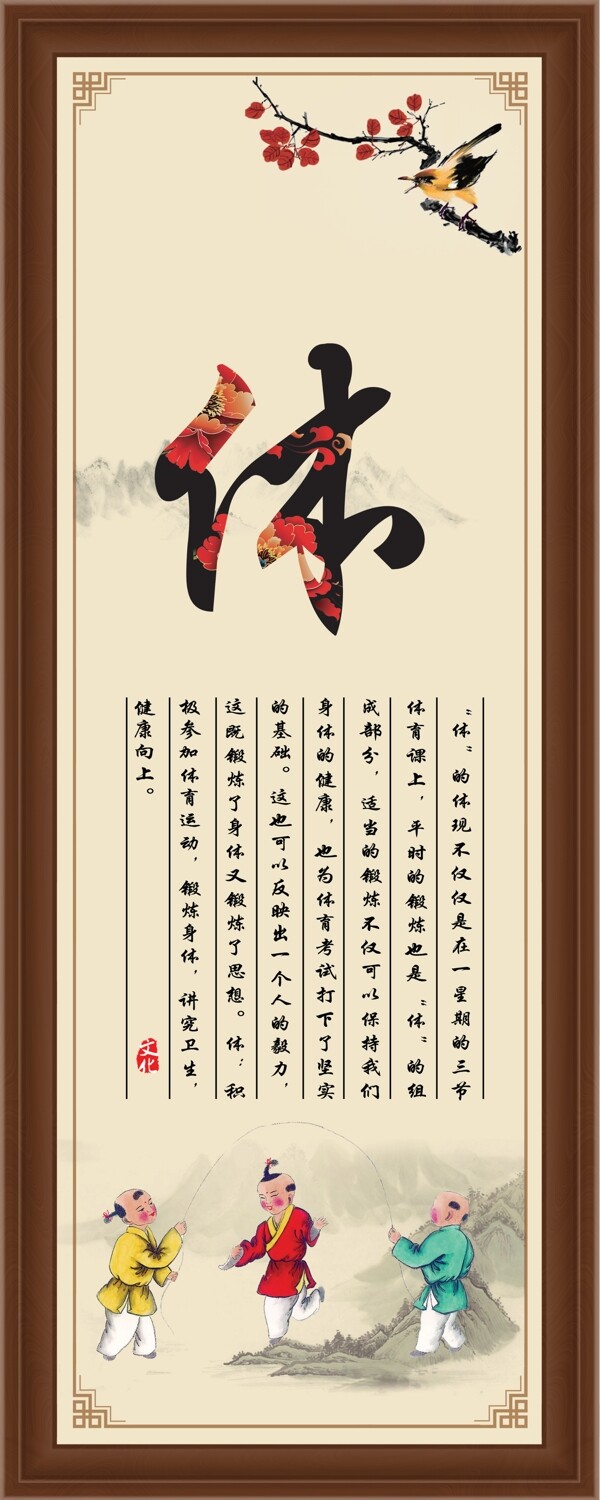 休
“体”的体现不仅仅是在一星期的三节
体育课上，平时的锻炼也是“体”的组
成部分，适当的锻炼不仅可以保持我们
身体的健康，也为体育考试打下了坚实
的基础。这也可以反映出一个人的毅力，
这既锻炼了身体又锻炼了思想。体：积
极参加体育运动，锻炼身体，讲究卫生，
健康向上。
文化